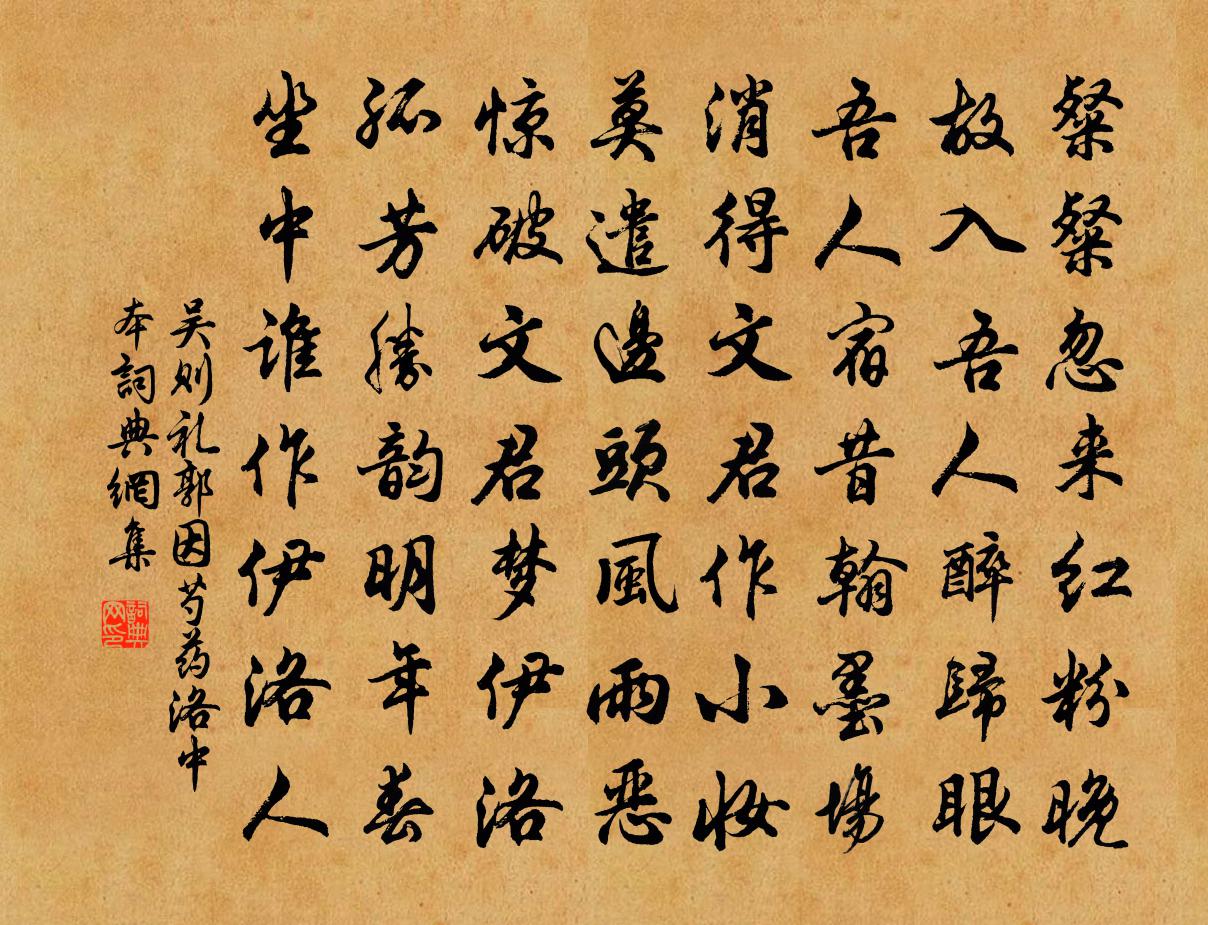 粲粲忽来红粉晚
故入吾人醉歸眼
吾人宿昔翰墨場
消得文君作小妝
莫遣邊頭風雨恶
惊破文君梦伊洛
孤芳勝韵明年春
坐中谁作伊洛人
吴则礼郭因芍药洛中
本詞典網集
詞典网印